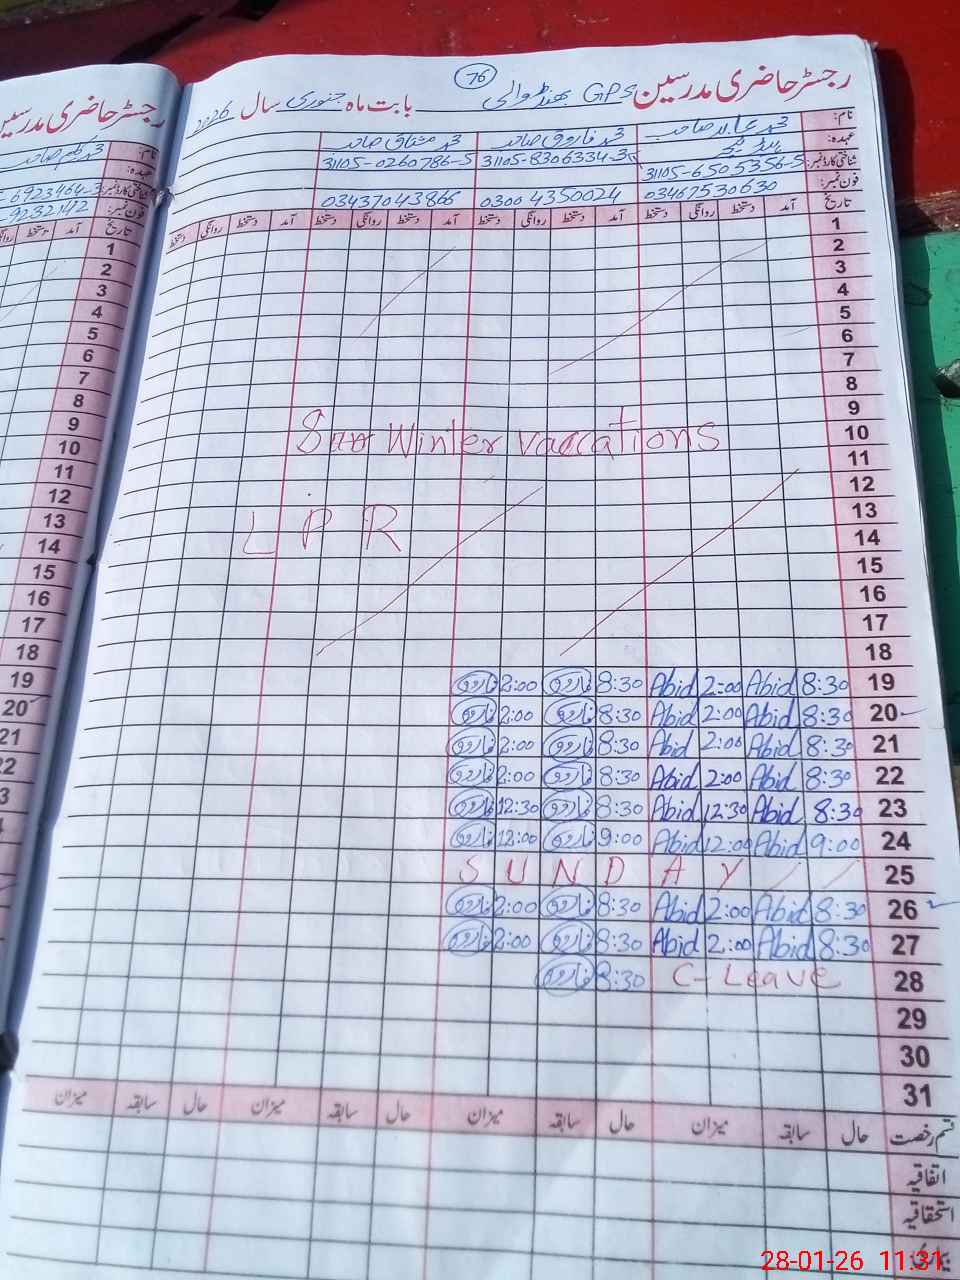 76
رجسٹر حاضری مدرسین GPS بھنڈوالی بابت ماہ جنوری سال 2026
نام: محمد عابد صاحب محمد فاروق صاحب محمد مشتاق صاحب
عہدہ:
شناختی کارڈ نمبر: 31105-6505356-5 31105-8306334-3 31105-0260786-5
فون نمبر: 03467530630 0300 4350024 03437043866
تاریخ آمد دستخط روانگی دستخط آمد دستخط روانگی دستخط آمد دستخط روانگی دستخط آمد دستخط روانگی دستخط
1
2
3
4
5
6
7
8
9
10 Winter vaccations
11
12
13 LPR
14
15
16
17
18
19 8:30 Abid 2:00 Abid 8:30 فاروق 2:00 فاروق
20 8:30 Abid 2:00 Abid 8:30 فاروق 2:00 فاروق
21 8:30 Abid 2:00 Abid 8:30 فاروق 2:00 فاروق
22 8:30 Abid 2:00 Abid 8:30 فاروق 2:00 فاروق
23 8:30 Abid 12:30 Abid 8:30 فاروق 12:30 فاروق
24 9:00 Abid 12:00 Abid 9:00 فاروق 12:00 فاروق
25 SUNDAY
26 8:30 Abid 2:00 Abid 8:30 فاروق 2:00 فاروق
27 8:30 Abid 2:00 Abid 8:30 فاروق 2:00 فاروق
28 C-Leave 8:30 فاروق
29
30
31
قسم رخصت حال سابقہ میزان حال سابقہ میزان حال سابقہ میزان حال سابقہ میزان
اتفاقیہ
استحقاقیہ
رجسٹر حاضری مدرسین
نام:
عہدہ:
شناختی کارڈ نمبر: 6923464-3
فون نمبر: 9232142
تاریخ آمد دستخط روانگی
1
2
3
4
5
6
7
8
9
10
11
12
13
14
15
16
17
18
19
20
21
22
3
28-01-26 11:31